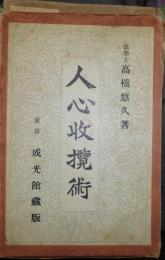 法學士 高橋悠久著
人心收攬術
東京 成光館藏版